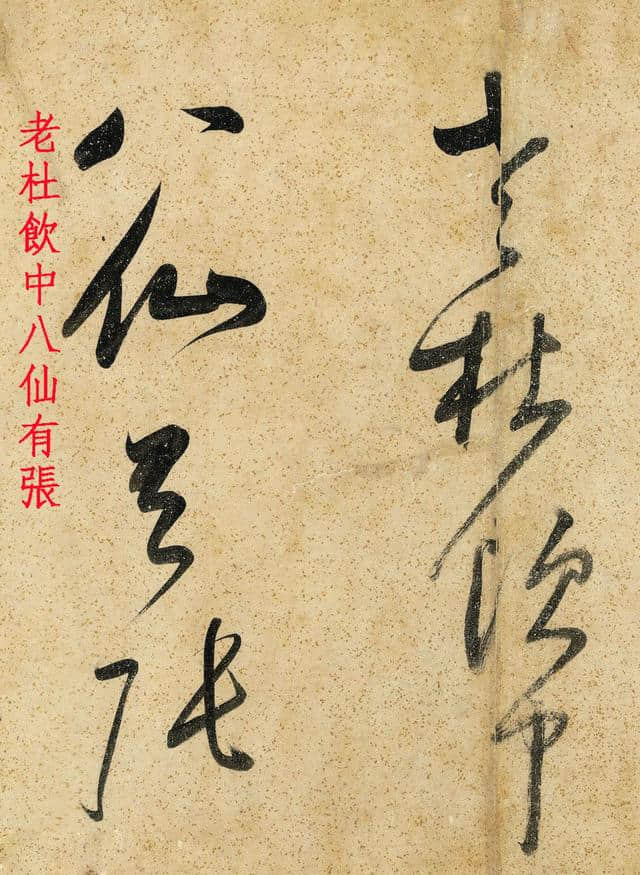 老杜飲中
八仙有張
老杜飲中八仙有張